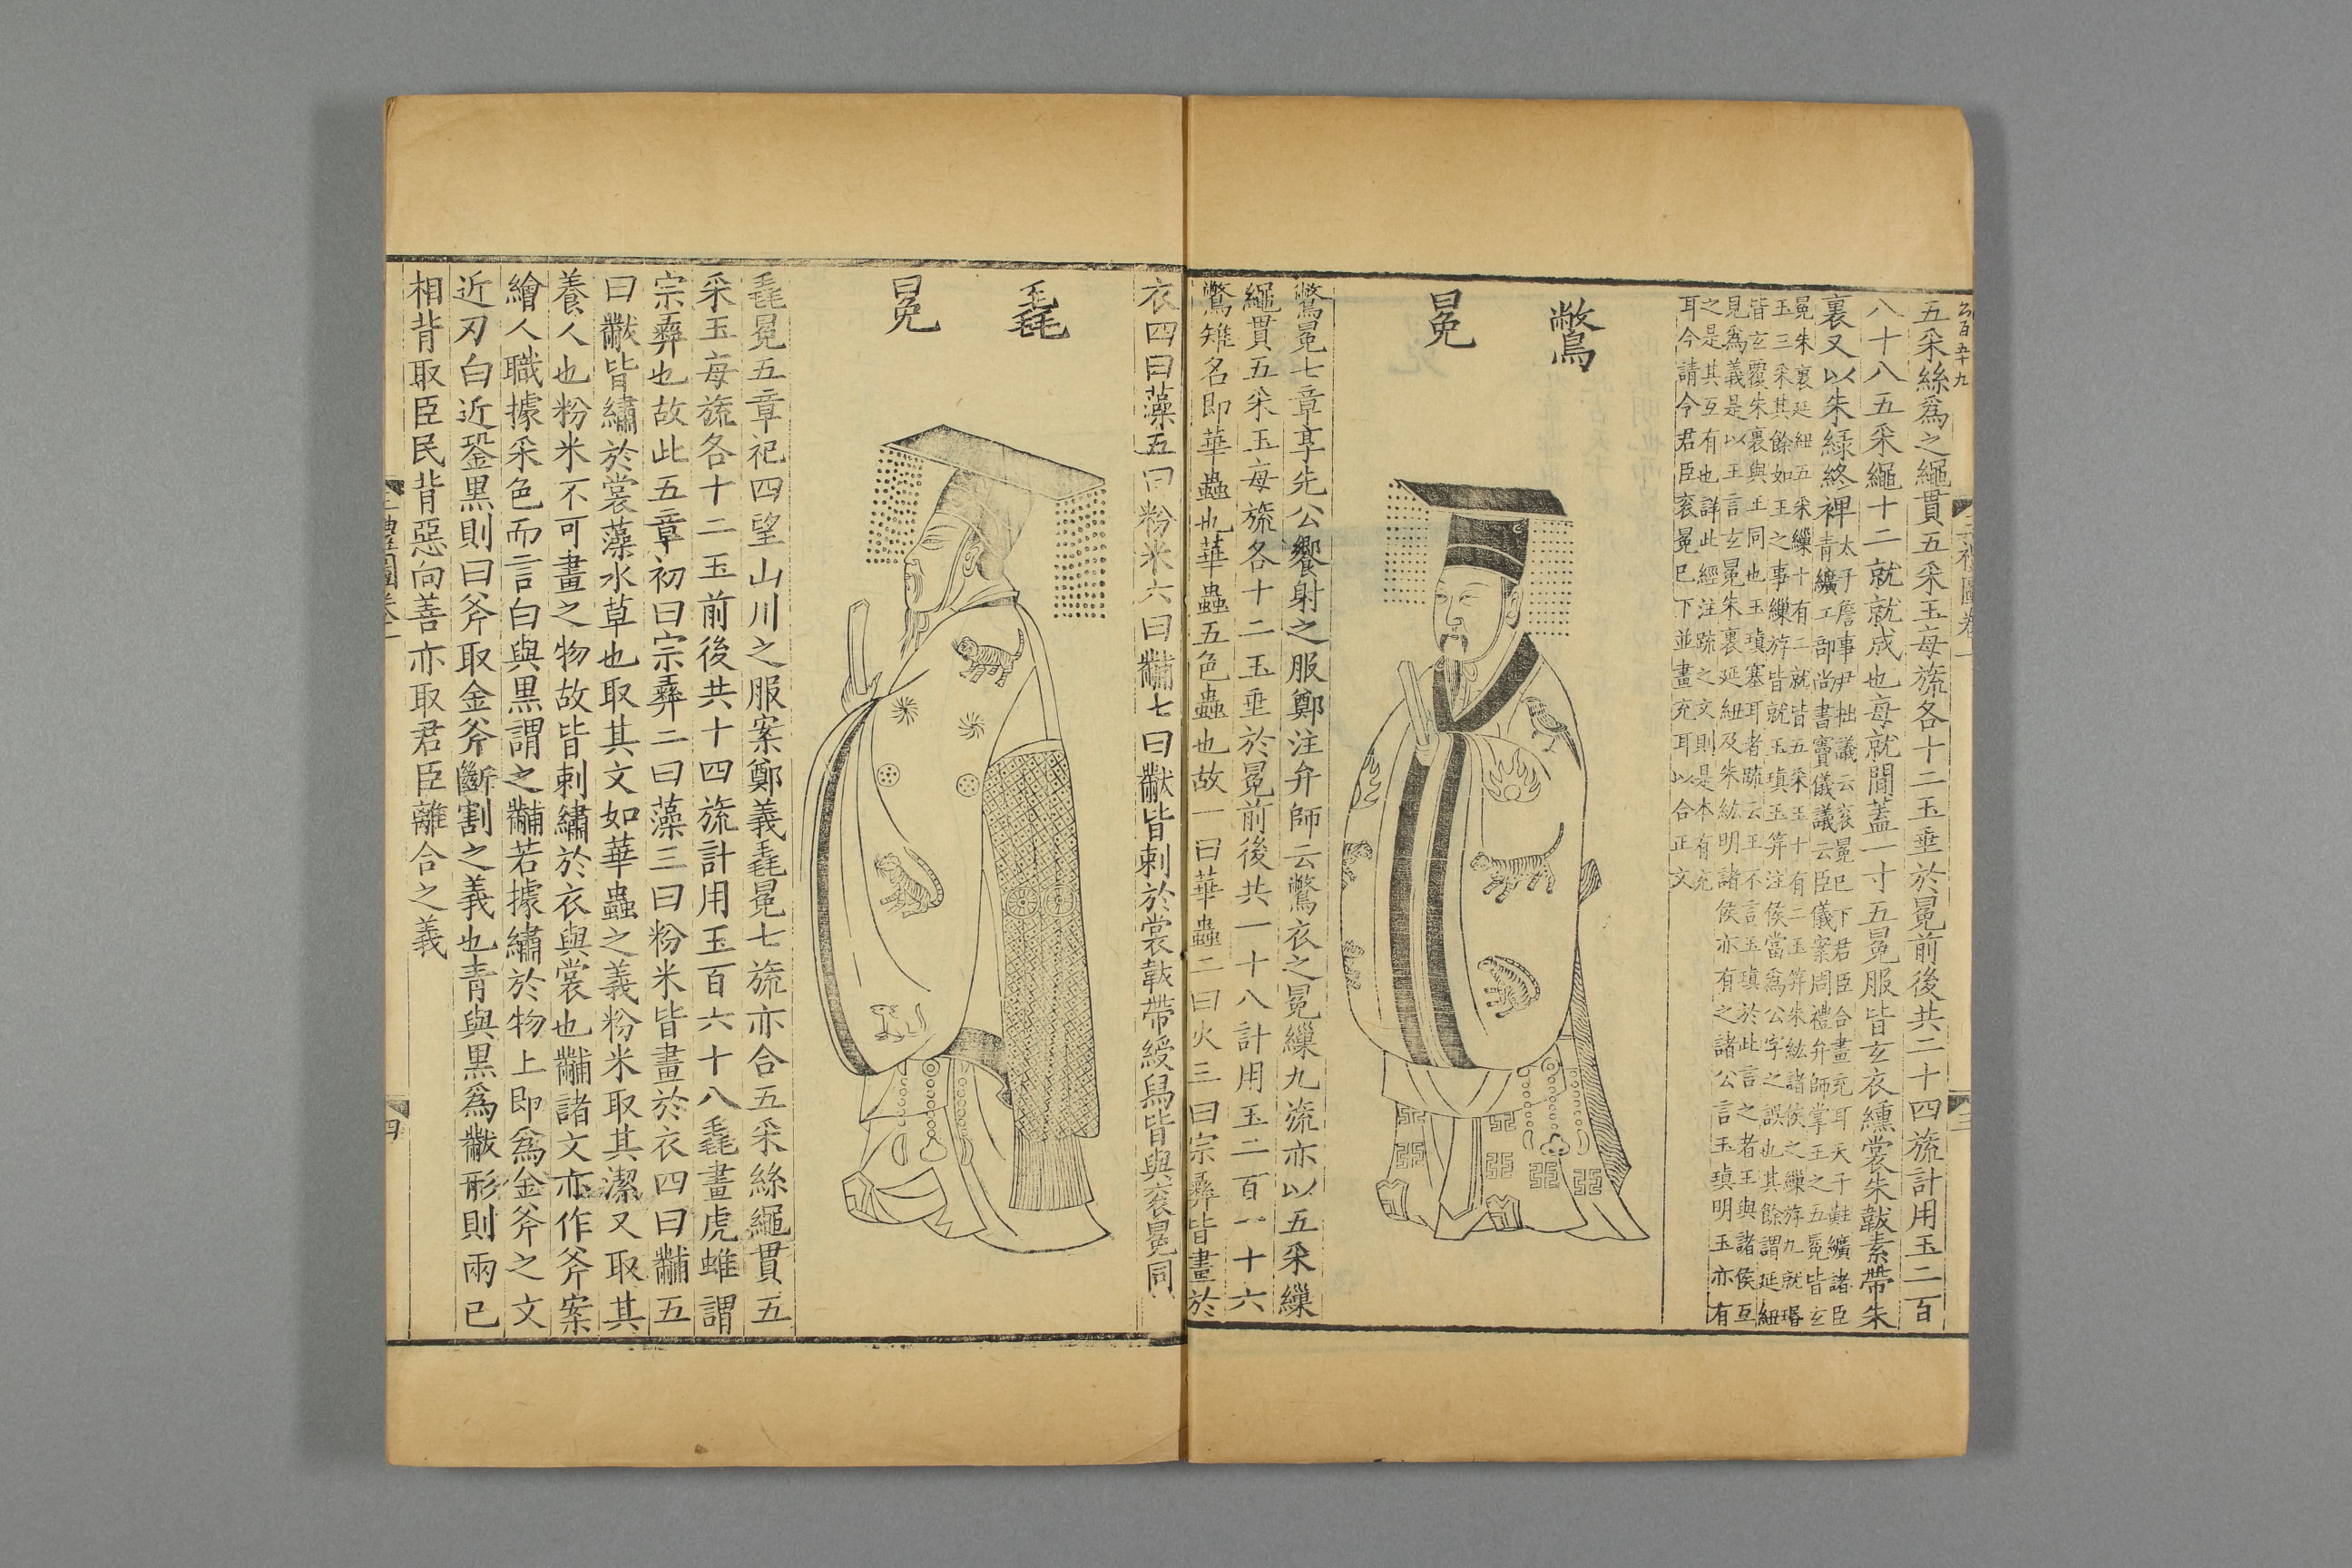 五采絲爲之繩貫五采玉每旒各十二玉垂於冕前後共二十四旒計用玉二百
八十八五采繩十二就就成也每就間蓋一寸五冕服皆玄衣纁裳朱韍素帶朱
裏又以朱綠終裨青纊
太子詹事尹拙議云衮冕已下君臣合畫充耳天子黈纊諸臣
工部尚書竇儀議云臣儀案周禮弁師掌王之五冕皆玄
冕朱裏延紐五采繅十有二就皆五采玉十有二玉筓朱紘諸侯之繅斿九就瑉
玉三采其餘如王之事繅斿皆就玉瑱玉筓注侯當爲公字之誤也其餘謂延紐
皆玄覆朱裏與王同也玉瑱塞耳者疏云王不言玉瑱於此言之者王與諸侯互
見爲義是以王言玄冕朱裏延紐及朱紘明諸侯亦有之諸公言玉瑱明王亦有
之是其互有也詳此經注疏之文則是本有充
耳今請令君臣衮冕已下並畫充耳以合正文
鷩
冕
鷩冕七章享先公饗射之服鄭注弁師云鷩衣之冕繅九旒亦以五采繅
繩貫五采玉每旒各十二玉垂於冕前後共一十八計用玉二百一十六
鷩雉名即華蟲也華蟲五色蟲也故一曰華蟲二曰火三曰宗彝皆畫於
衣四曰藻五曰粉米六曰黼七曰黻皆刺於裳韍帶綬舄皆與衮冕同
毳
冕
毳冕五章祀四望山川之服案鄭義毳冕七旒亦合五采絲繩貫五
采玉每旒各十二玉前後共十四旒計用玉百六十八毳畫虎蜼謂
宗彝也故此五章初曰宗彝二曰藻三曰粉米皆畫於衣四曰黼五
曰黻皆繡於裳藻水草也取其文如華蟲之義粉米取其潔又取其
養人也粉米不可畫之物故皆刺繡於衣與裳也黼諸文亦作斧案
繪人職據采色而言白與黑謂之黼若據繡於物上即爲金斧之文
近刃白近銎黑則曰斧取金斧斷割之義也青與黑爲黻形則兩已
相背取臣民背惡向善亦取君臣離合之義
三禮圖卷一
三
四